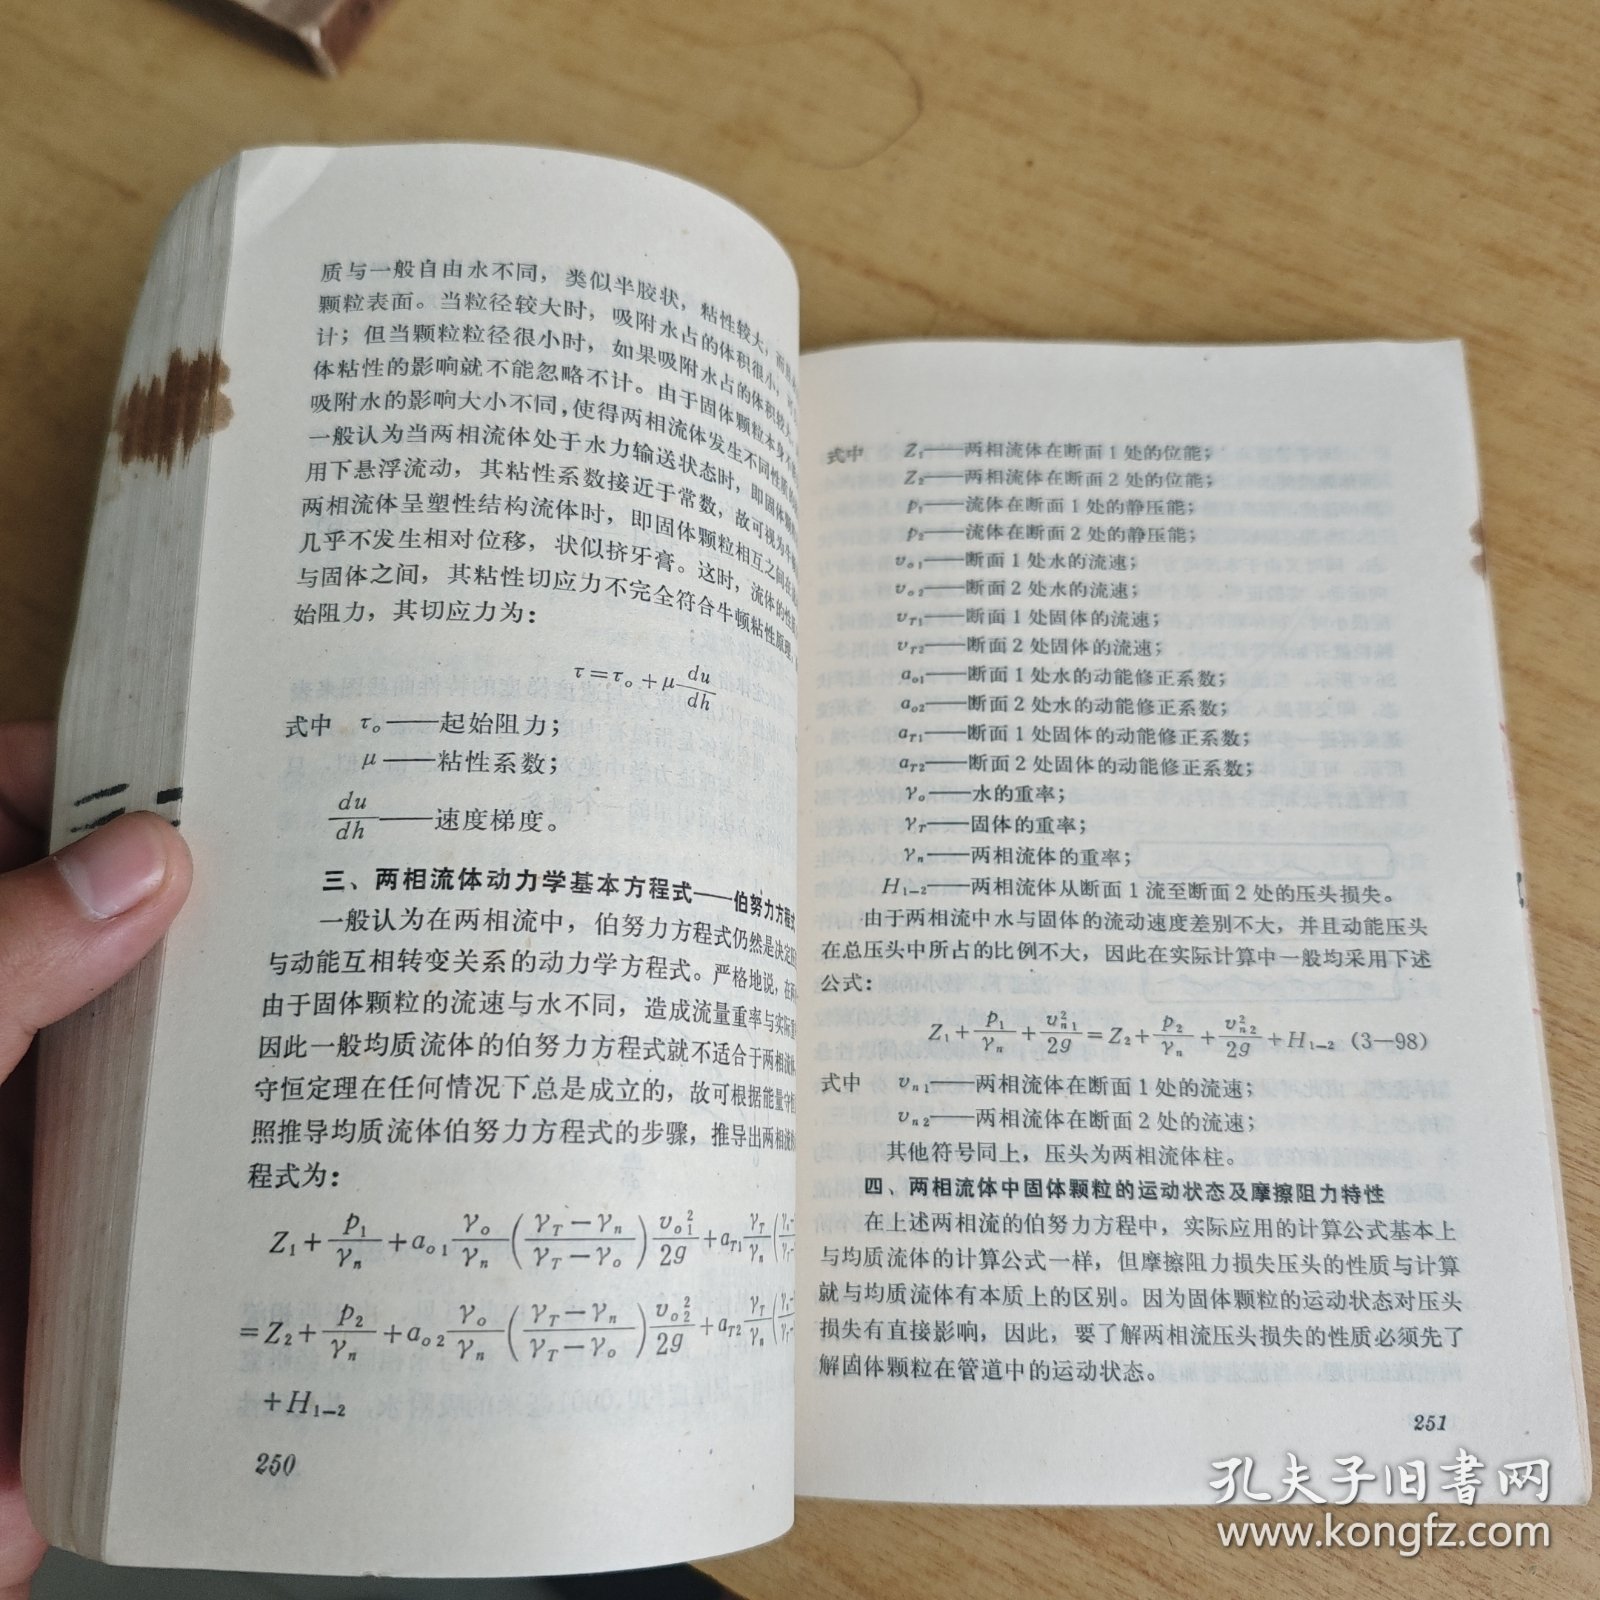 质与一般自由水不同，类似半胶状，粘性较大，而且
颗粒表面。当粒径较大时，吸附水占的体积很小，可
计；但当颗粒粒径很小时，如果吸附水占的体积较大，
体粘性的影响就不能忽略不计。由于固体颗粒本身
吸附水的影响大小不同，使得两相流体发生不同性质的
一般认为当两相流体处于水力输送状态时，即固体颗粒
用下悬浮流动，其粘性系数接近于常数，故可视为牛
两相流体呈塑性结构流体时，即固体颗粒相互之间在
几乎不发生相对位移，状似挤牙膏。这时，流体的性
与固体之间，其粘性切应力不完全符合牛顿粘性原理，
始阻力，其切应力为：
τ=τ₀+μ du/dh
式中 τ₀——起始阻力；
μ——粘性系数；
du/dh——速度梯度。
三、两相流体动力学基本方程式——伯努力方程式
一般认为在两相流中，伯努力方程式仍然是决定
与动能互相转变关系的动力学方程式。严格地说，在
由于固体颗粒的流速与水不同，造成流量重率与实际重
因此一般均质流体的伯努力方程式就不适合于两相流体
守恒定理在任何情况下总是成立的，故可根据能量守恒
照推导均质流体伯努力方程式的步骤，推导出两相流
程式为：
Z₁+p₁/γₙ+a₀₁ γ₀/γₙ((γ_T−γₙ)/(γ_T−γ₀)) v₀₁²/2g+a_T1 γ_T/γₙ(
=Z₂+p₂/γₙ+a₀₂ γ₀/γₙ((γ_T−γₙ)/(γ_T−γ₀)) v₀₂²/2g+a_T2 γ_T/γₙ(
+H₁₋₂
250
式中 Z₁——两相流体在断面1处的位能；
Z₂——两相流体在断面2处的位能；
p₁——流体在断面1处的静压能；
p₂——流体在断面2处的静压能；
v₀₁——断面1处水的流速；
v₀₂——断面2处水的流速；
v_T1——断面1处固体的流速；
v_T2——断面2处固体的流速；
a₀₁——断面1处水的动能修正系数；
a₀₂——断面2处水的动能修正系数；
a_T1——断面1处固体的动能修正系数；
a_T2——断面2处固体的动能修正系数；
γ₀——水的重率；
γ_T——固体的重率；
γₙ——两相流体的重率；
H₁₋₂——两相流体从断面1流至断面2处的压头损失。
由于两相流中水与固体的流动速度差别不大，并且动能压头
在总压头中所占的比例不大，因此在实际计算中一般均采用下述
公式：
Z₁+p₁/γₙ+vₙ₁²/2g=Z₂+p₂/γₙ+vₙ₂²/2g+H₁₋₂ (3—98)
式中 vₙ₁——两相流体在断面1处的流速；
vₙ₂——两相流体在断面2处的流速；
其他符号同上，压头为两相流体柱。
四、两相流体中固体颗粒的运动状态及摩擦阻力特性
在上述两相流的伯努力方程中，实际应用的计算公式基本上
与均质流体的计算公式一样，但摩擦阻力损失压头的性质与计算
就与均质流体有本质上的区别。因为固体颗粒的运动状态对压头
损失有直接影响，因此，要了解两相流压头损失的性质必须先了
解固体颗粒在管道中的运动状态。
251
孔夫子旧书网
www.kongfz.com